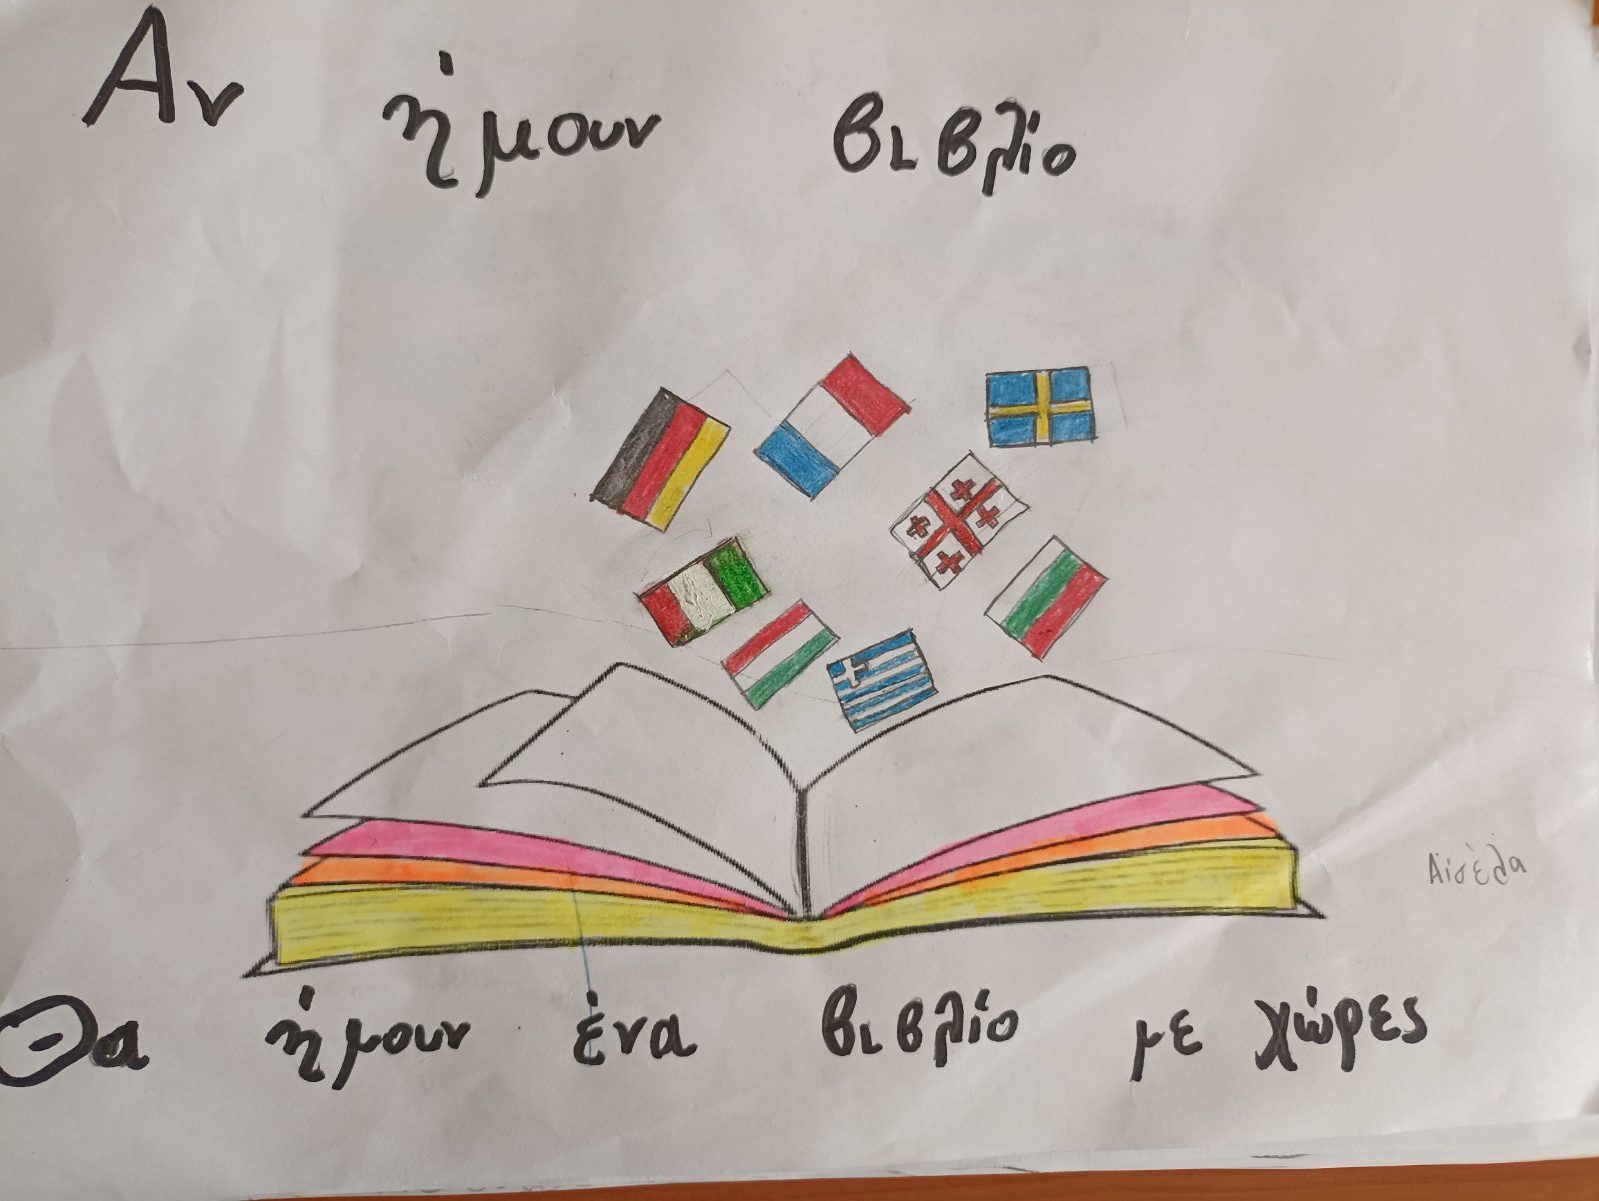 Αν ήμουν βιβλίο
Αϊσέλα
Θα ήμουν ένα βιβλίο με χώρες